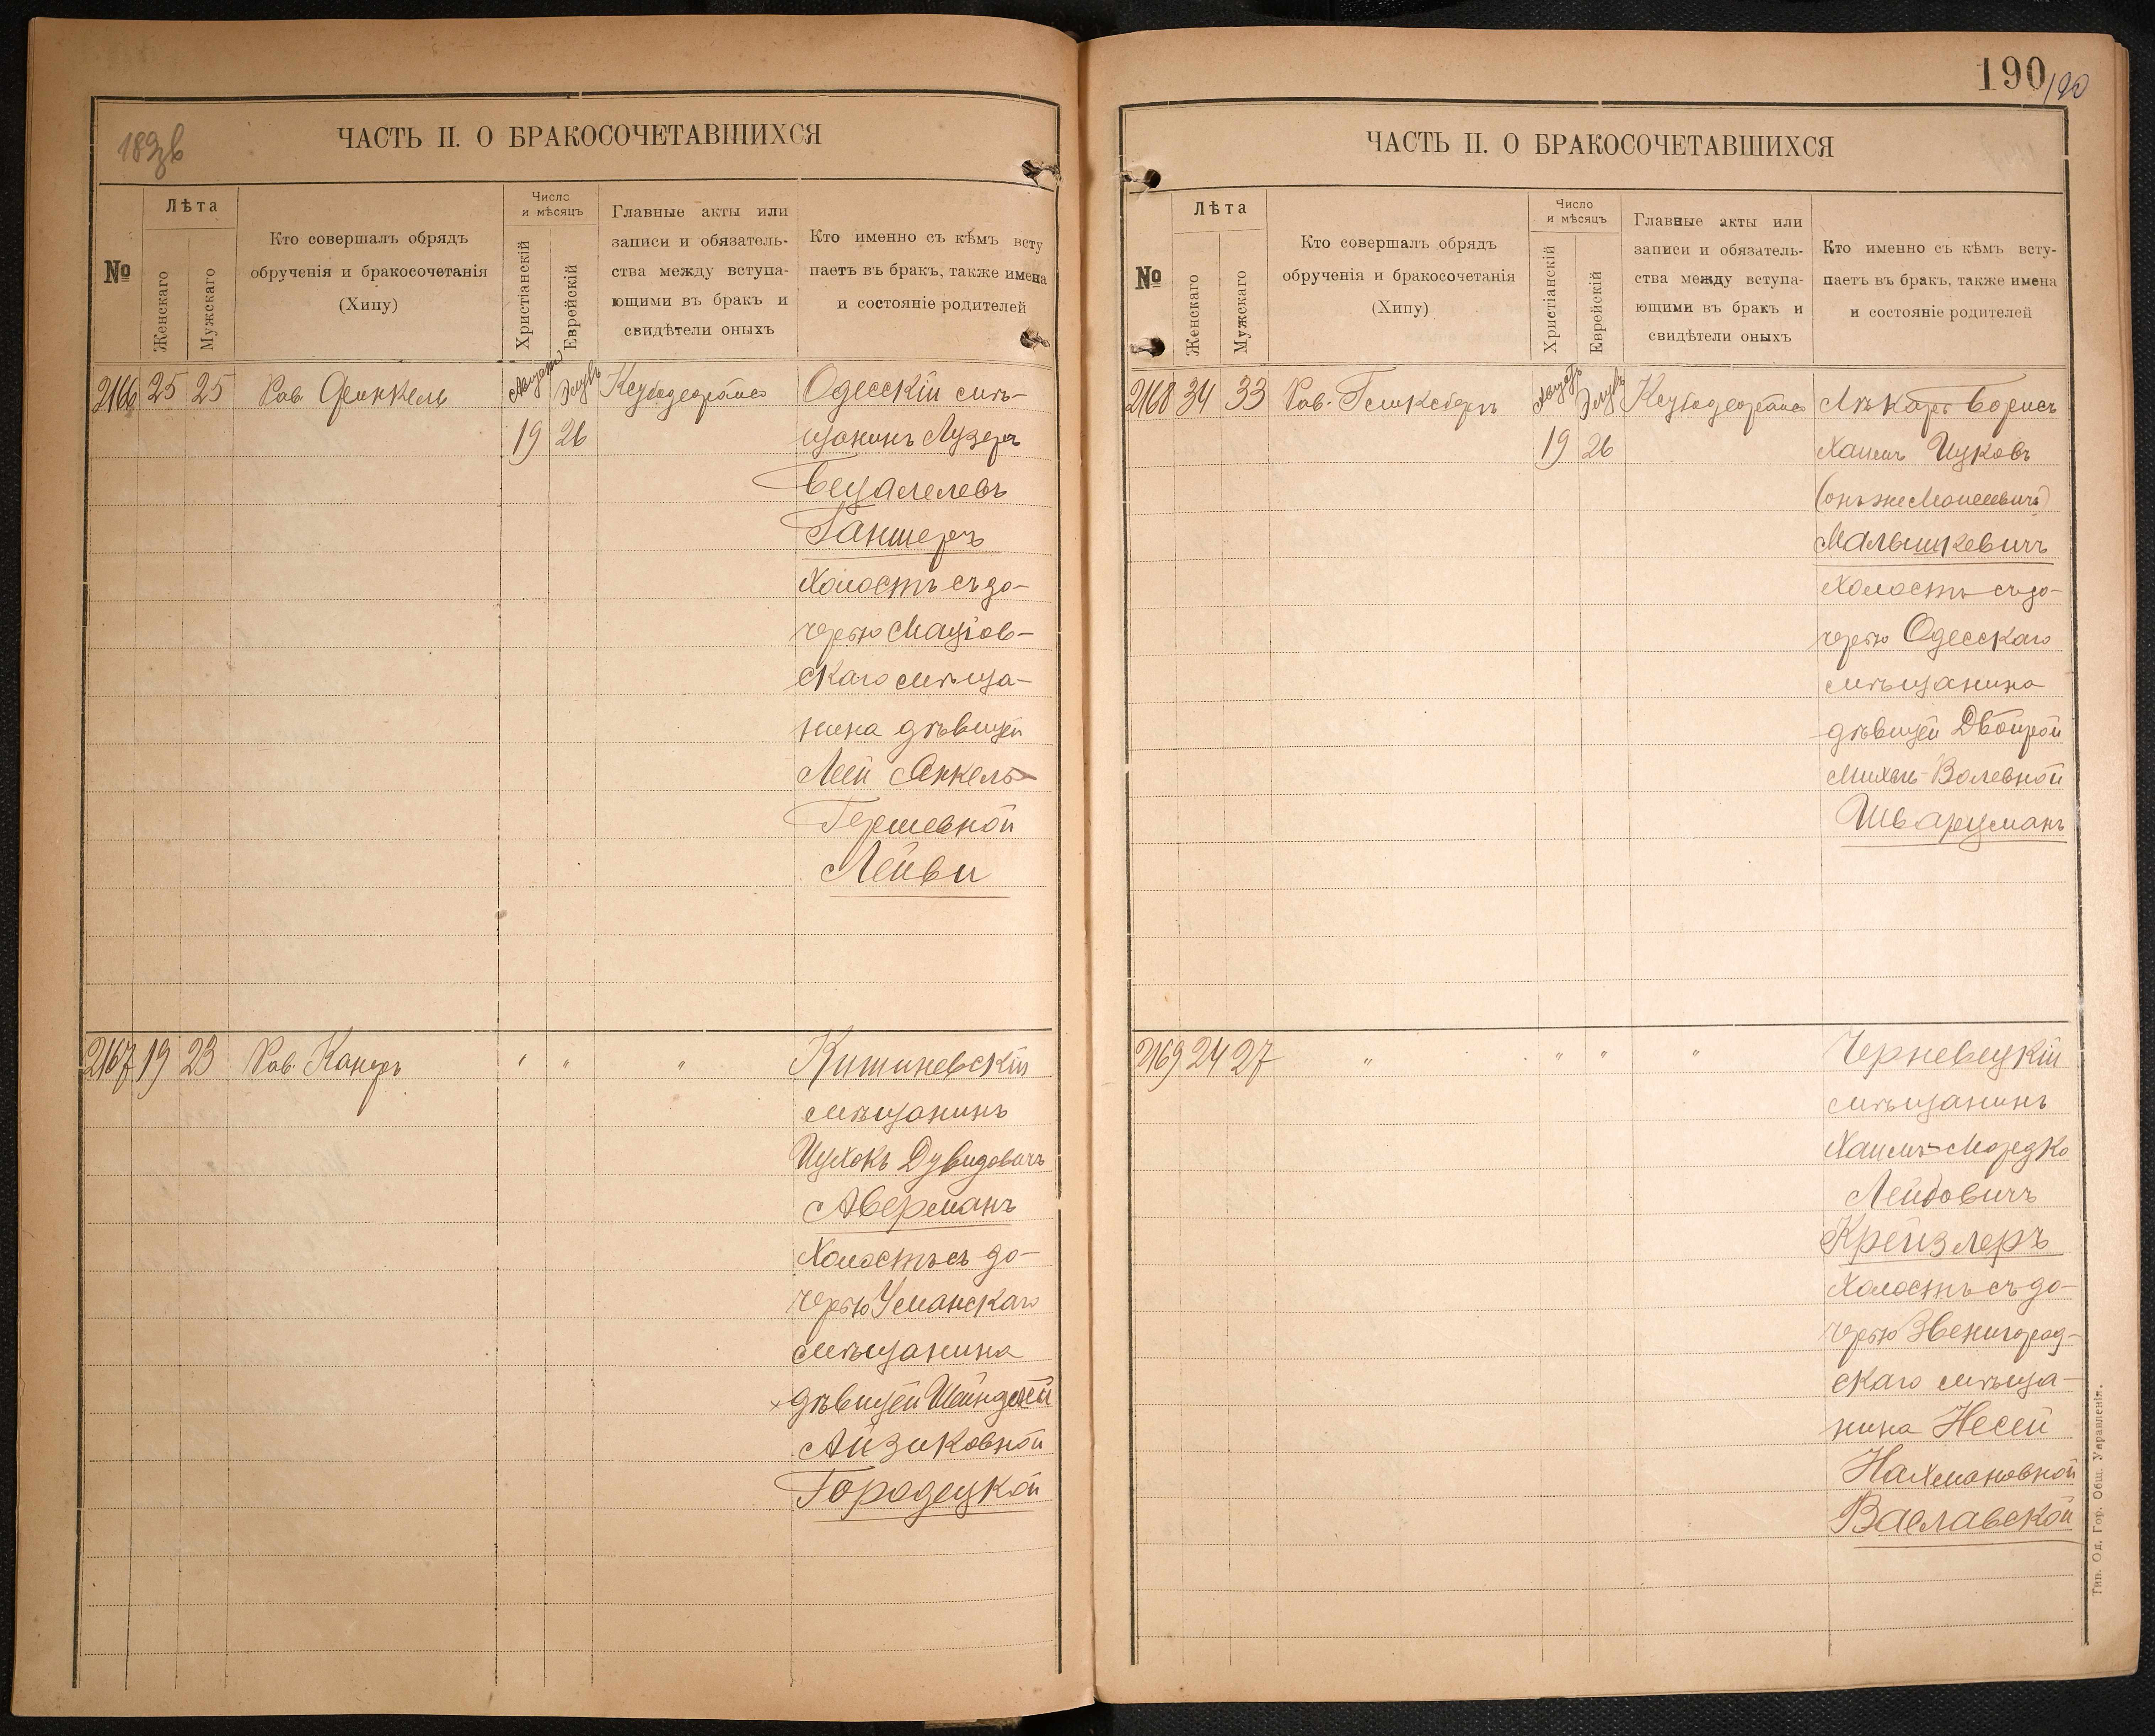 189 об
ЧАСТЬ II. О БРАКОСОЧЕТАВШИХСЯ
№
Лѣта
Женскаго
Мужскаго
Кто совершалъ обрядъ
обрученія и бракосочетанія
(Хипу)
Число
и мѣсяцъ
Христіанскій
Еврейскій
Главные акты или
записи и обязатель-
ства между вступа-
ющими въ бракъ и
свидѣтели оныхъ
Кто именно съ кѣмъ всту
паетъ въ бракъ, также имена
и состояніе родителей
2166 25 25 Рав. Финкель Августъ Элулъ
19 26
Одесскій мѣ-
щанинъ Лузеръ
Бецалелевъ
Ганшеръ
Холостъ съ до-
черью Маціов-
скаго мѣща-
нина дѣвицей
Леей Янкель-
Гершевной
Лейви
2167 19 23 Рав. Канеръ " " "
Кишиневскій
мѣщанинъ
Ицхокъ Дувидовичъ
Аверманъ
Холостъ съ до-
черью Уманскаго
мѣщанина
дѣвицей Шейндлей
Айзиковной
Городецкой
190
190
ЧАСТЬ II. О БРАКОСОЧЕТАВШИХСЯ
№
Лѣта
Женскаго
Мужскаго
Кто совершалъ обрядъ
обрученія и бракосочетанія
(Хипу)
Число
и мѣсяцъ
Христіанскій
Еврейскій
Главные акты или
записи и обязатель-
ства между вступа-
ющими въ бракъ и
свидѣтели оныхъ
Кто именно съ кѣмъ всту-
паетъ въ бракъ, также имена
и состояніе родителей
2168 34 33 Рав. Гинксбергъ Августъ Элулъ
19 26
Лѣкарь Борисъ
Хаимъ Ицковъ
(онъ же Моисеевичъ)
Малышкевичъ
Холостъ съ до-
черью Одесскаго
мѣщанина
дѣвицей Двойрой
Михель-Волевной
Шварцманъ
2169 24 27 " " " "
Черневецкій
мѣщанинъ
Хаимъ-Мордко
Лейбовичъ
Крейзлеръ
Холостъ съ до-
черью Звенигород-
скаго мѣща-
нина Несей
Нахмановной
Ваславской
Тип. Од. Гор. Общ. Управленія.